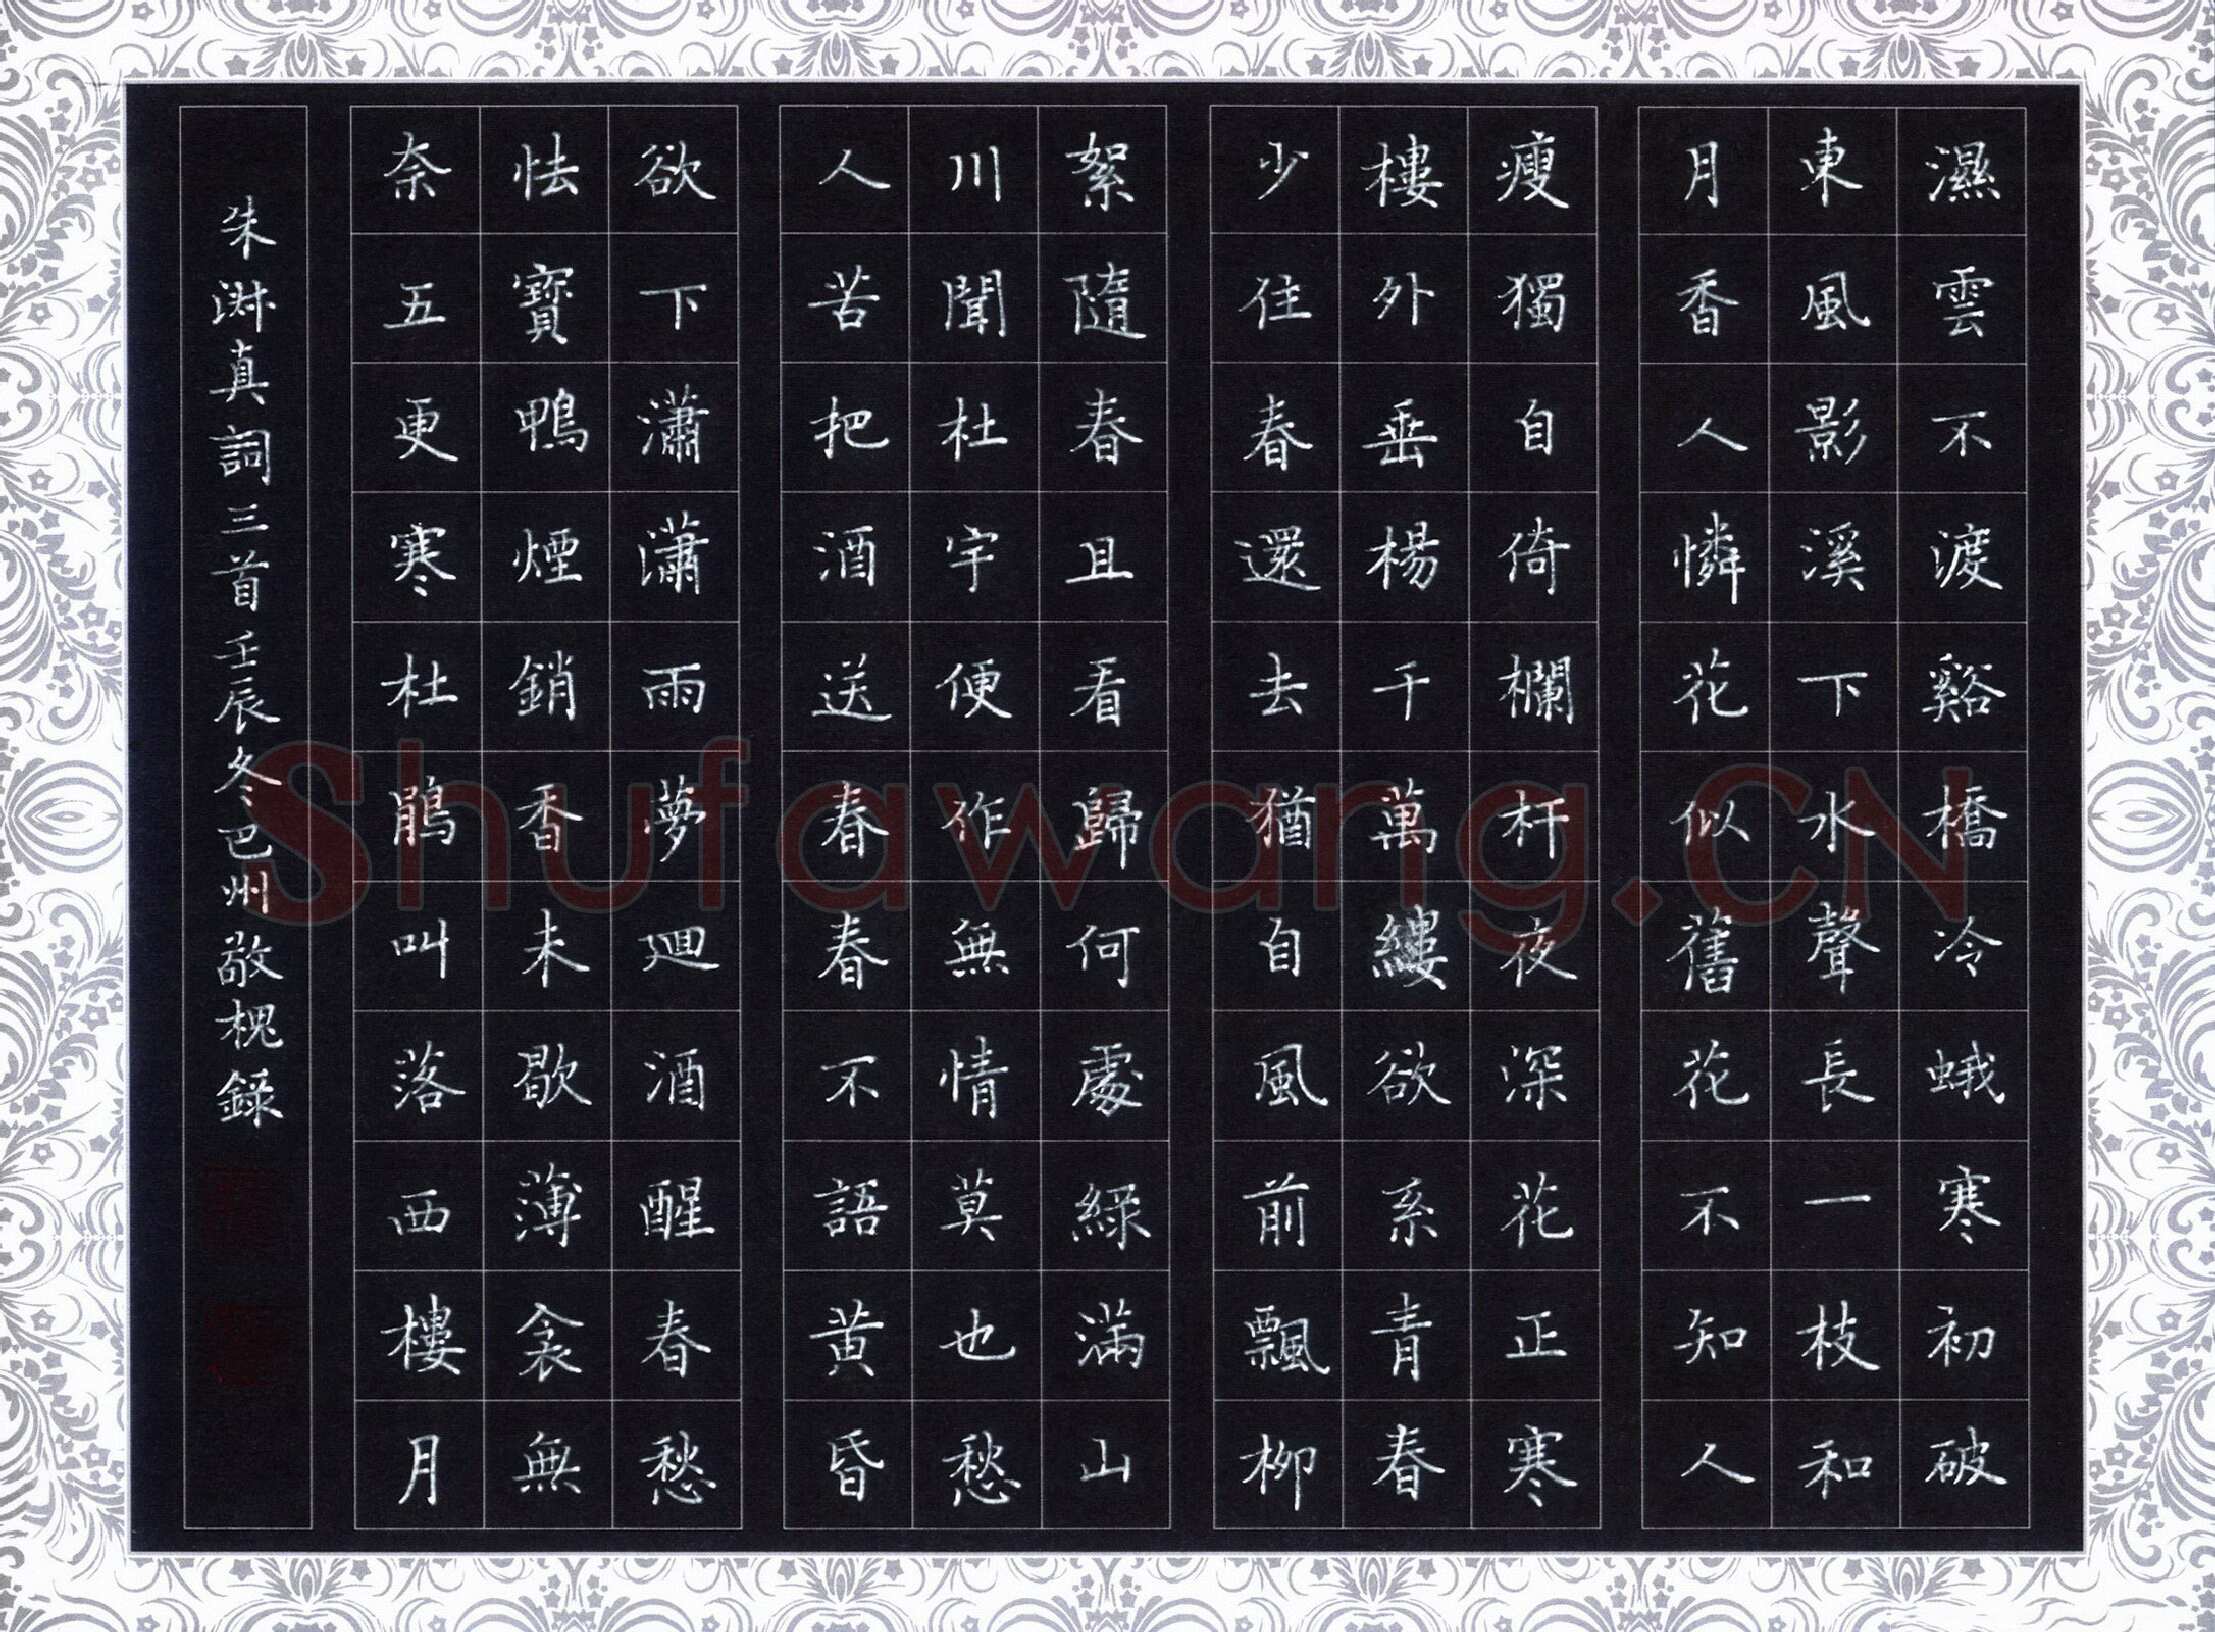 濕雲不渡谿橋冷蛾寒初破
東風影溪下水聲長一枝和
月香人憐花似舊花不知人
瘦獨自倚欄杆夜深花正寒
樓外垂楊千萬縷欲系青春
少住春還去猶自風前飄柳
絮隨春且看歸何處綠滿山
川聞杜宇便作無情莫也愁
人苦把酒送春春不語黄昏
欲下瀟瀟雨夢廻酒醒春愁
怯寶鴨煙銷香未歇薄衾無
奈五更寒杜鵑叫落西樓月
朱淑真詞三首壬辰冬巴州敬槐錄
Shufawang.CN